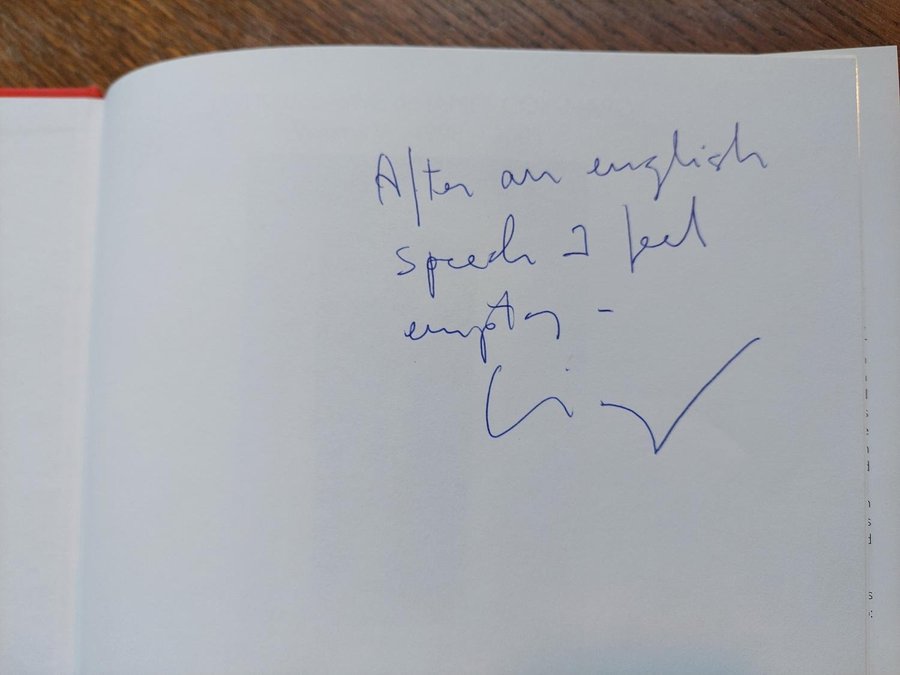 After an english
speech I feel
empty -